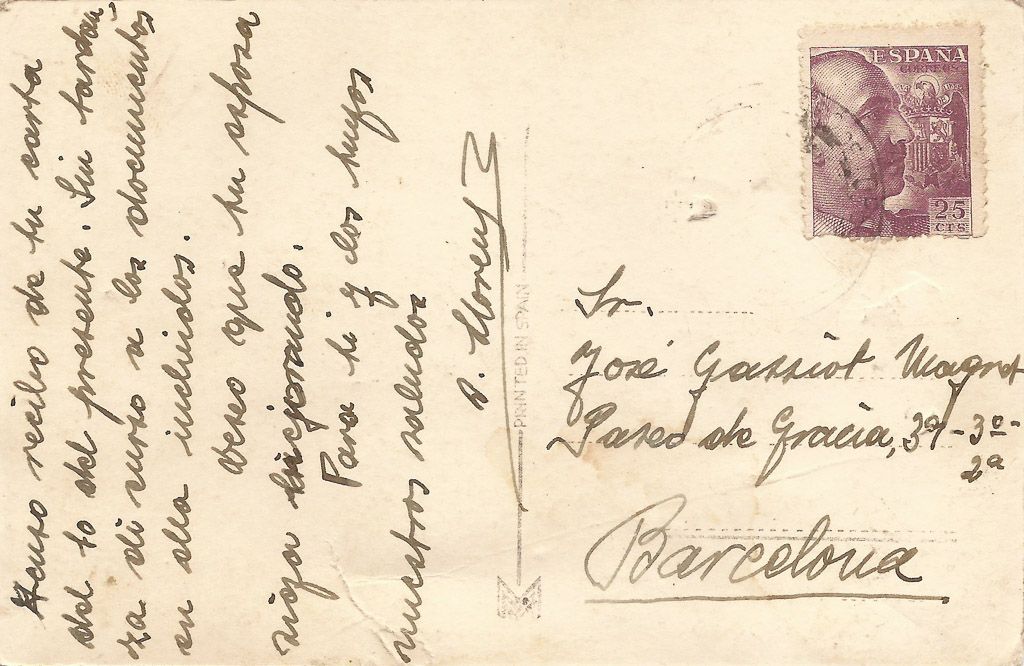 Acuso recibo de tu carta
del 10 del presente. Sin tardan-
za di curso a los documentos
en ella incluidos.
Deseo que tu esposa
siga mejorando.
Para ti y los tuyos
nuestros saludos
Llorens
PRINTED IN SPAIN
ESPAÑA
CORREOS
25
CTS
Sr.
José Gassiot Magret
Paseo de Gracia, 39-3º-
2ª
Barcelona